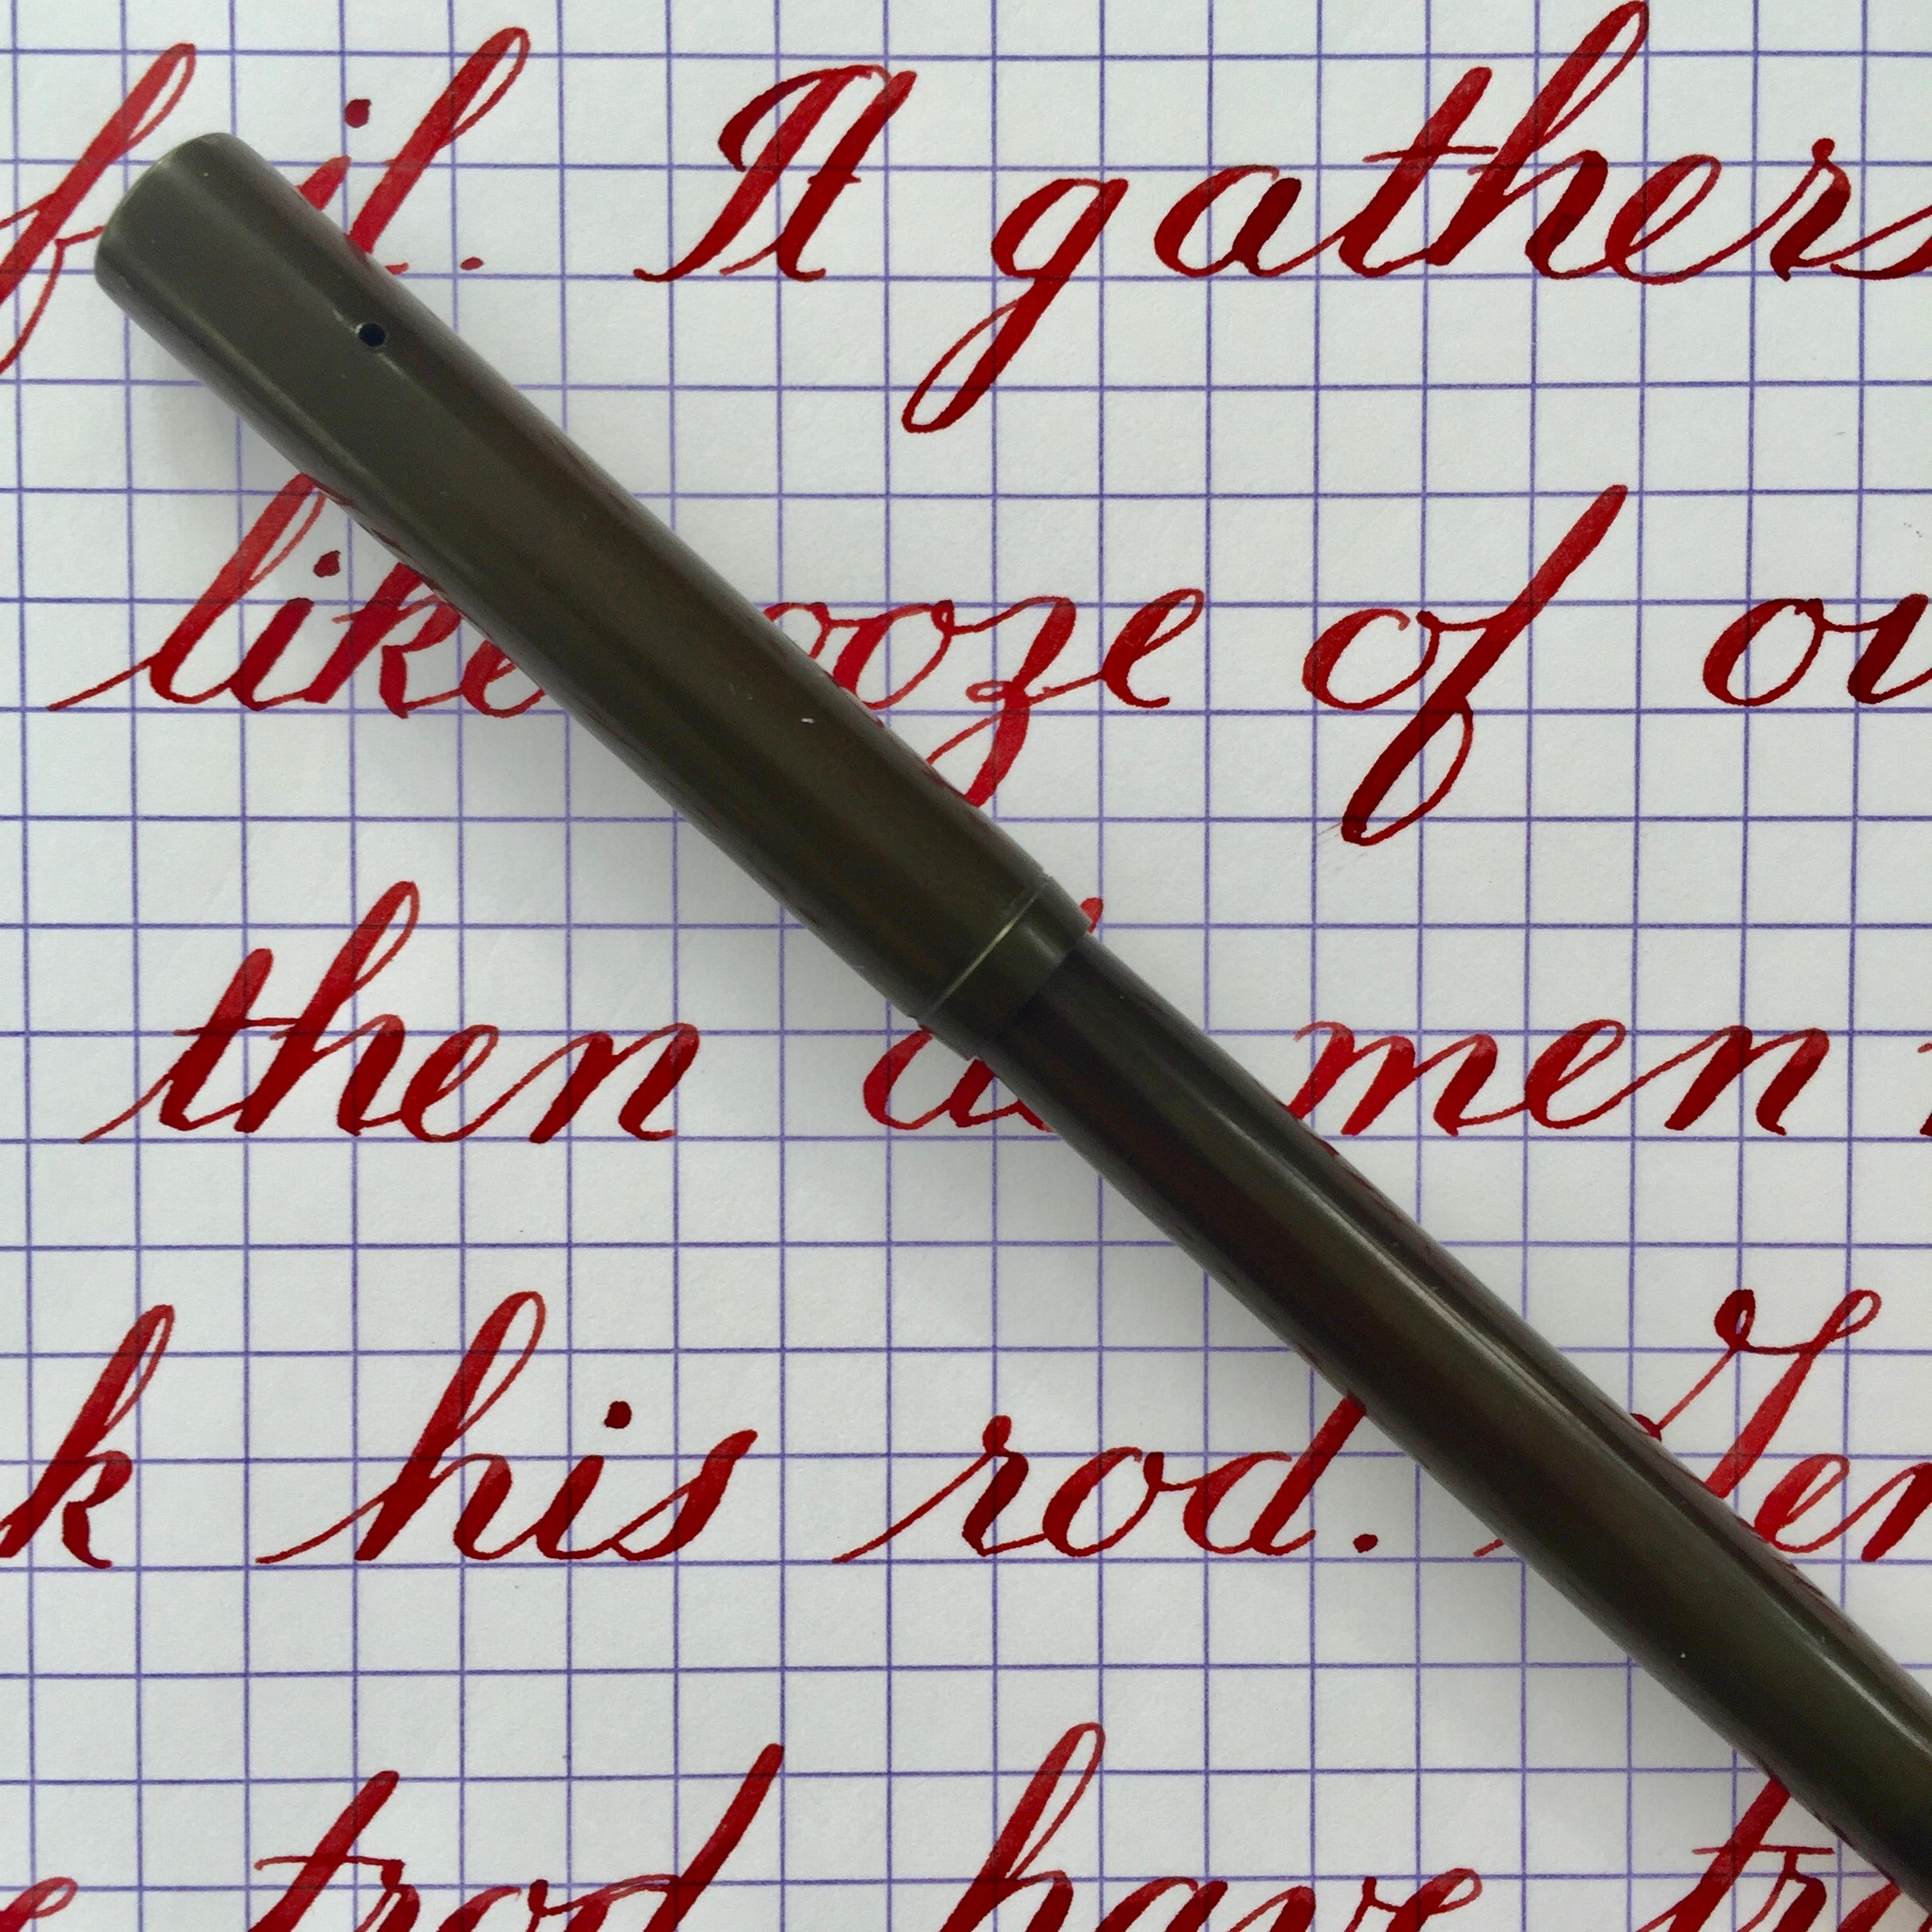 foil. It gathers
like ooze of
then do men
his rod. Gen
trod have